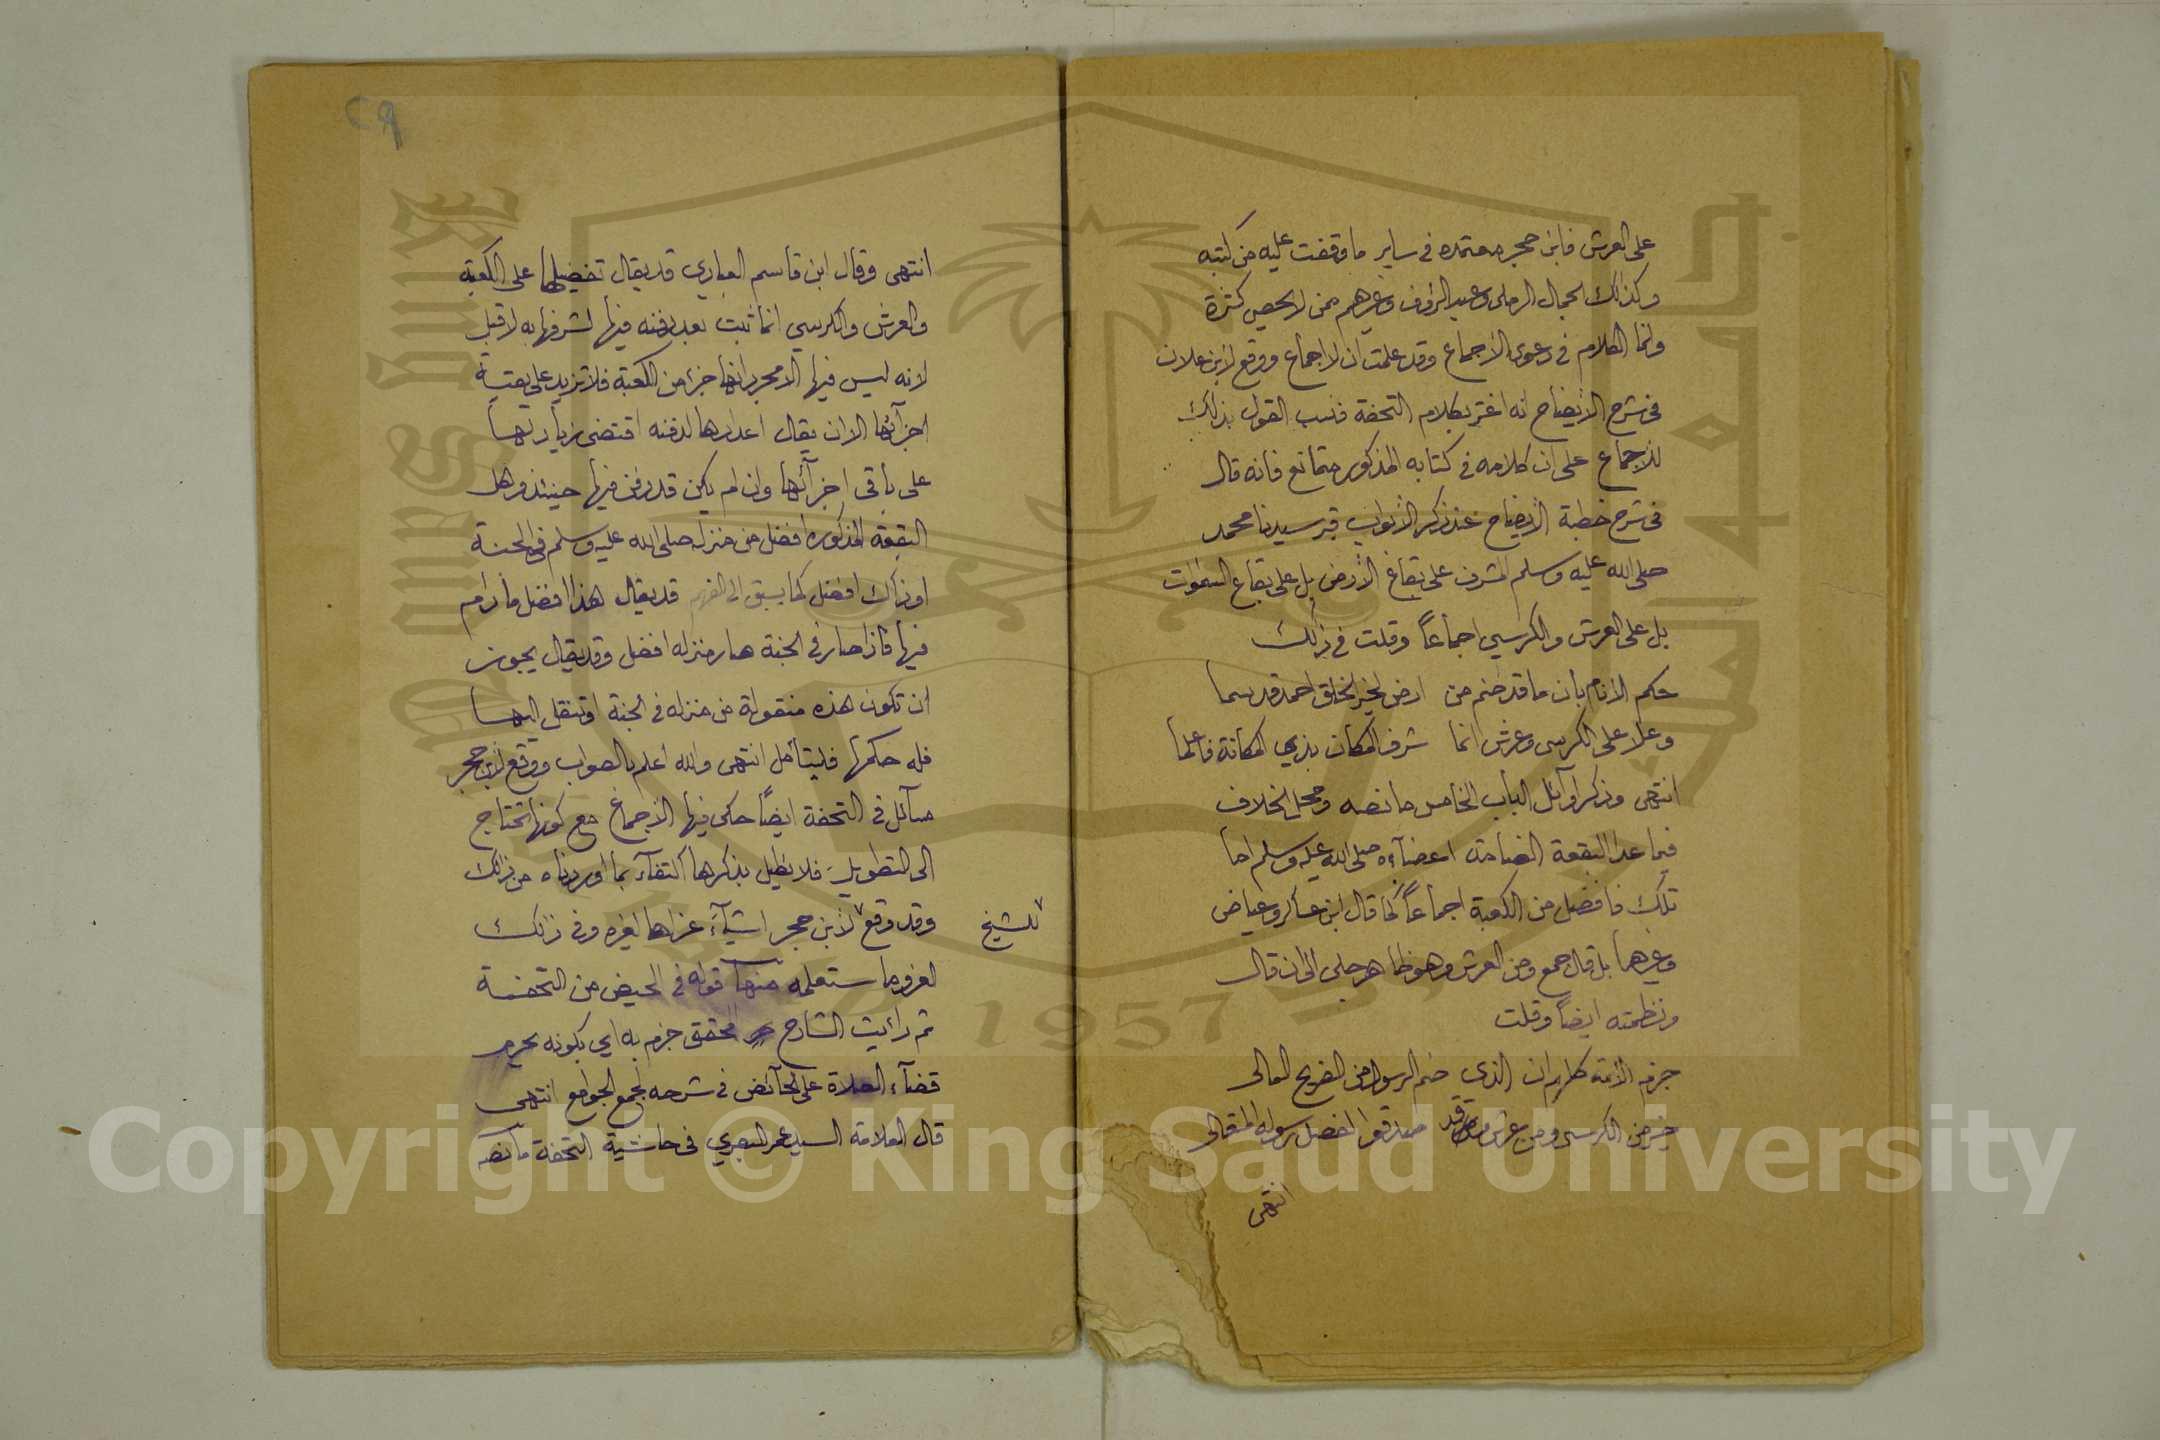 على العرش فابن حجر معتمده في ساير ما وقفت عليه من كتبه
وكذلك الجمال الرملى وعبد الرؤف وغيرهم ممن لا يحصى كثرة
وانما الكلام في دعوى الأجماع وقد علمت ان لا اجماع ووقع لأبن علان
في شرح الأيضاح انه اغتر بكلام التحفة فنسب القول بذلك
للأجماع على ان كلامه في كتابه المذكور متمانع فانه قال
في شرح خطبة الأيضاح عند ذكر الأبواب قبر سيدنا محمد
صلى الله عليه وسلم المشرف على بقاع الأرض بل على بقاع السموات
بل على العرش والكرسي اجماعاً وقلت في ذلك
حكم الأنام بان ما قد ضم من ارض لخير الخلق احمد قد سما
وعلا على الكرسى وعرش انما شرف المكان بذي المكانة فاعلما
انتهى وذكر اوآئل الباب الخامس ما نصه ومحل الخلاف
فيما عدا البقعة الضامة اعضآءه صلى الله عليه وسلم اما
تلك فافضل من الكعبة اجماعاً كما قال ابن عساكر وعياض
وغيرهما بل قال جمع ومن العرش وهو ظاهر جلى الى ان قال
ونظمته ايضاً وقلت
جزم الأئمة كلهم ان الذي ضم الرسول من الضريح العالى
خير من الكرسى ومن عرش وقد صدقوا لفضل رسوله المفضال
انتهى
٢٩
انتهى وقال ابن قاسم العبادي قد يقال تفضيلها على الكعبة
والعرش والكرسي انما ثبت بعد دفنه فيها لشرفها به لا قبل
لانه ليس فيها الا مجرد انها جزء من الكعبة فلا تزيد على بقية
اجزآئها الا ان يقال اعدادها لدفنه اقتضى زيادتها
على باقى اجزآئها وان لم يكن قد دفن فيها حينئذ وهل
البقعة المذكورة افضل من منزله صلى الله عليه وسلم في الجنة
او ذاك افضل كما يسبق الى الفهم قد يقال هذا افضل ما دام
فيها فاذا صار في الجنة صار منزله افضل وقد يقال يجوز
ان تكون هذه منقولة من منزله في الجنة او تنقل اليها
فله حكمها فليتأمل انتهى والله اعلم بالصواب ووقع لأبن حجر
مسآئل في التحفة ايضاً حكى فيها الأجماع مع كونها تحتاج
الى التطويل فلا نطيل بذكرها اكتفآء بما اوردناه من ذلك
وقد وقع لأبن حجر اشيآء عزاها لغيره وفى ذلك
للشيخ
العزو ما ستعلمه منها قوله في الحيض من التحفة
ثم رأيت الشارح المحقق جزم به اي بكونه يحرم
قضآء الصلاة على الحآئض في شرحه لجمع الجوامع انتهى
قال العلامة السيد عمر البصري في حاشية التحفة ما نصه
1957
Copyright © King Saud University